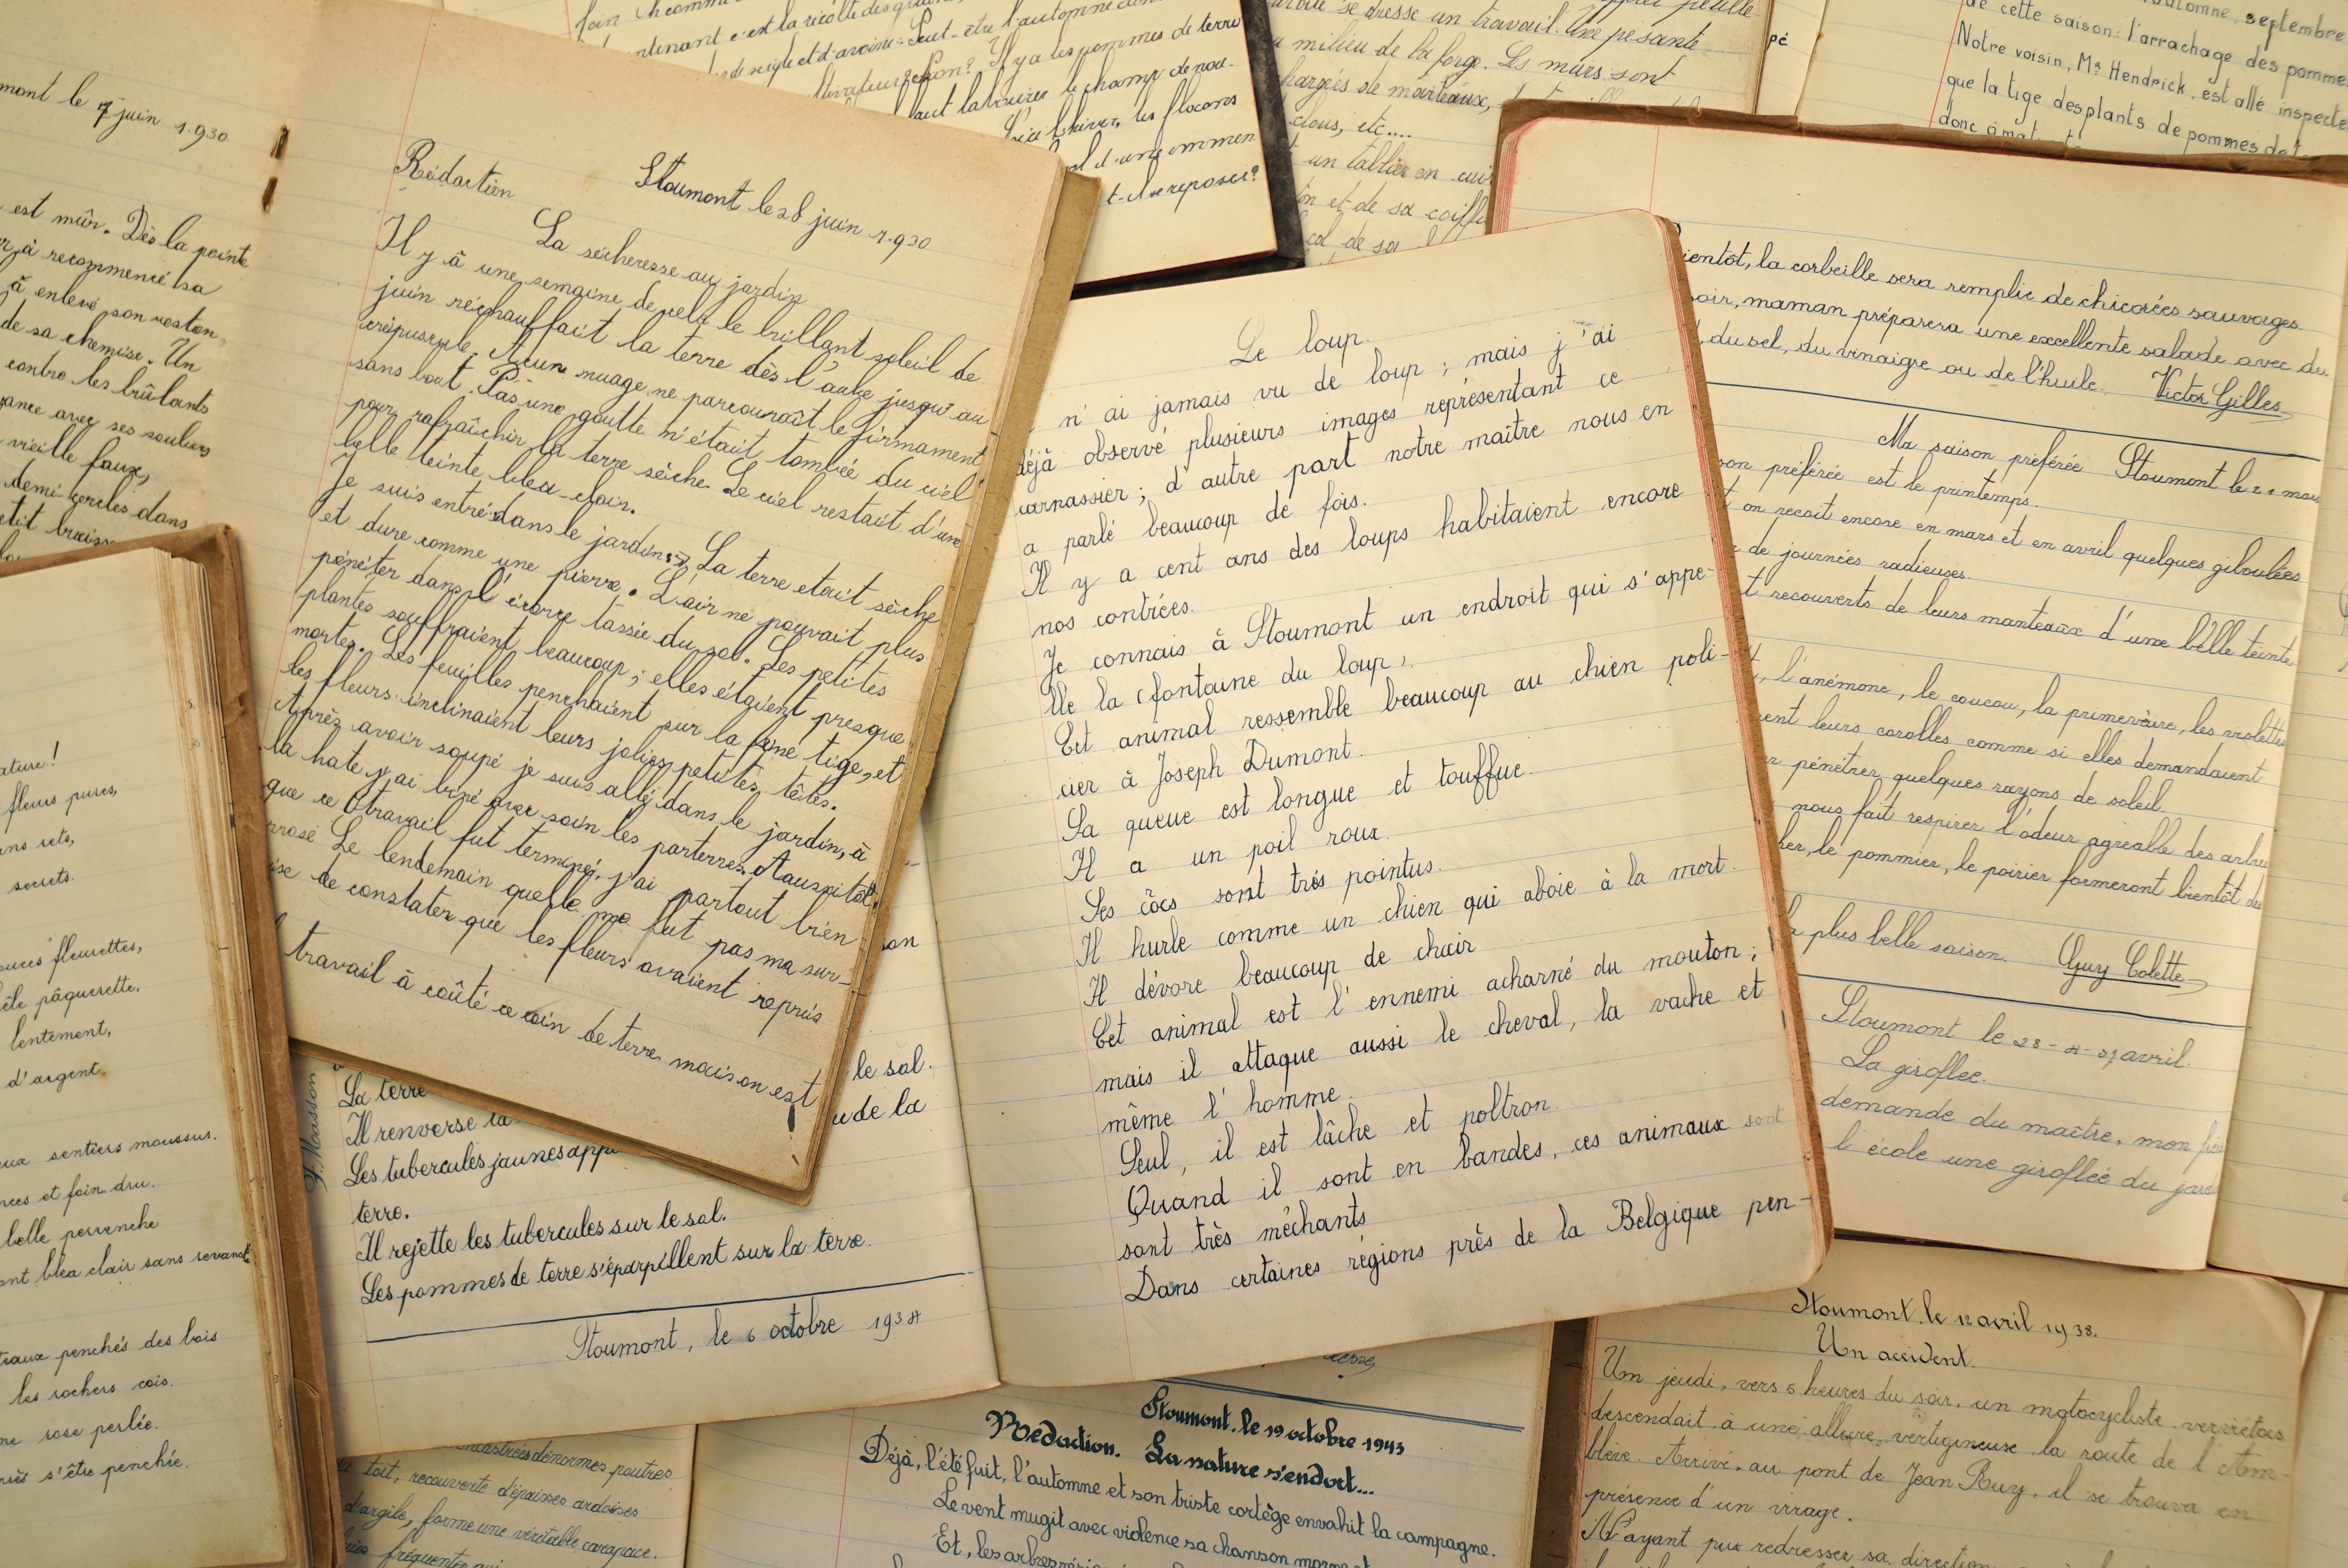 mont le 7 juin 1.930
est mûr. Dès la pointe
à recommencé sa
à enlevé son veston,
de sa chemise. Un
contre les brûlants
avec ses souliers
vieille faux,
demi-cercles dans
ature!
fleurs pures,
secrets.
fleurettes,
pâquerette,
lentement,
d'argent.
sentiers moussus.
et foin dru.
belle pervenche
bleu clair sans
penchés des bois
les rochers cois.
rose perlée.
s'être penchée.
Rédaction Stoumont le 28 juin 1.930
La sécheresse au jardin
Il y à une semaine de cela le brillant soleil de
juin réchauffait la terre dès l'aube jusqu'au
crépuscule. Aucun nuage ne parcouraît le firmament
sans bout. Pas une goutte n'était tombée du ciel
pour rafraîchir la terre sèche. Le ciel restait d'une
belle teinte bleu-clair.
Je suis entré dans le jardin. La terre etait sèche
et dure comme une pierre. L'air ne pouvait plus
pénéter dans l'écorce tassée du sol. Les petites
plantes souffraient beaucoup; elles étaient presque
mortes. Les feuilles penchaient sur la fine tige, et
les fleurs inclinaient leurs jolies petites têtes.
Après avoir soupé je suis allé dans le jardin, à
la hate j'ai biné avec soin les parterres. Aussitôt
que ce travail fut terminé, j'ai partout bien
rrosé Le lendemain quelle ne fut pas ma sur-
ise de constater que les fleurs avaient repris
travail à coûté ce coin de terre mais on est
maintenant c'est la récolte des
de seigle et d'avoine. Peut-être l'automne
Il y a les pommes de terre
labourer le champ de nou-
l'hiver, les flocons
d'une immen
t-il se reposer?
se dresse un travail. Une pesante
milieu de la forge. Ls murs sont
chargées de marteaux,
clous, etc....
un tablier en cuir
et de sa coiffe
col de sa
automne, septembre
de cette saison: l'arrachage des pommes
Notre voisin, Mr Hendrick, est allé inspecte
que la tige des plants de pommes de t
donc
Le loup.
n'ai jamais vu de loup; mais j'ai
déjà observé plusieurs images représentant ce
carnassier; d'autre part notre maître nous en
a parlé beaucoup de fois.
Il y a cent ans des loups habitaient encore
nos contrées.
Je connais à Stoumont un endroit qui s'appe-
lle la (fontaine du loup).
Cet animal ressemble beaucoup au chien poli-
cier à Joseph Dumont.
Sa queue est longue et touffue.
Il a un poil roux.
Ses côcs sont très pointus.
Il hurle comme un chien qui aboie à la mort.
Il dévore beaucoup de chair
Cet animal est l'ennemi acharné du mouton;
mais il attaque aussi le cheval, la vache et
même l'homme.
Seul, il est lâche et poltron.
Quand il sont en bandes, ces animaux sont
sont très méchants
Dans certaines régions près de la Belgique pen-
ientôt, la corbeille sera remplie de chicorées sauvages.
oir, maman préparera une excellente salade avec du
, du sel, du vinaigre ou de l'huile. Victor Gilles
Ma saison préférée Stoumont le 21 mar
son préférée est le printemps.
on reçoit encore en mars et en avril quelques giboulées
de journées radieuses.
t recouverts de leurs manteaux d'une belle teinte
, l'anémone, le coucou, la primevère, les violettes
ent leurs corolles comme si elles demandaient
r pénétrer quelques rayons de soleil.
nous fait respirer l'odeur agréable des arbres
er, le pommier, le poirier formeront bientôt des
plus belle saison. Guy Colette
Stoumont le 28 avril.
La giroflée.
demande du maître, mon
l'école une giroflée du jard
le sol.
de la
J. Masson
La terre
Il renverse la
Les tubercules jaunes app
terre.
Il rejette les tubercules sur le sol.
Les pommes de terre s'éparpillent sur la terre.
Stoumont, le 6 octobre 1934
encastrées d'énormes poutres
toit, recouverte d'épaisses ardoises
d'argile, forme une véritable carapace.
Stoumont, le 19 octobre 1943
Rédaction. La nature s'endort...
Déjà, l'été fuit, l'automne et son triste cortège envahit la campagne.
Le vent mugit avec violence sa chanson morne et
Et, les arbres
Stoumont, le 12 avril 1938.
Un accident.
Un jeudi, vers 5 heures du soir, un motocycliste verviétois
descendait à une allure vertigineuse la route de l'Am-
blève. Arrivé au pont de Jean Ruy, il se trouva en
présence d'un virage.
N'ayant pu redresser sa direction